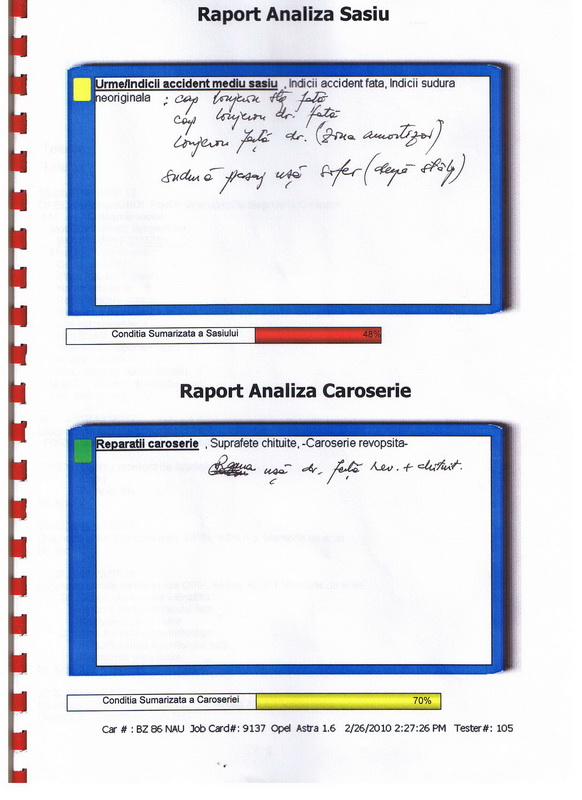 Raport Analiza Sasiu
Urme/Indicii accident mediu sasiu , Indicii accident fata, Indicii sudura
neoriginala : cap lonjeron stg fată
cap lonjeron dr. fată
lonjeron față dr. (zona amortizor)
sudură pasaj ușă sofer (după stâlp)
Conditia Sumarizata a Sasiului 48%
Raport Analiza Caroserie
Reparatii caroserie , Suprafete chituite, -Caroserie revopsita-
Rama ușă dr. față rev. + chituit.
Conditia Sumarizata a Caroseriei 70%
Car # : BZ 86 NAU Job Card#: 9137 Opel Astra 1.6 2/26/2010 2:27:26 PM Tester#: 105